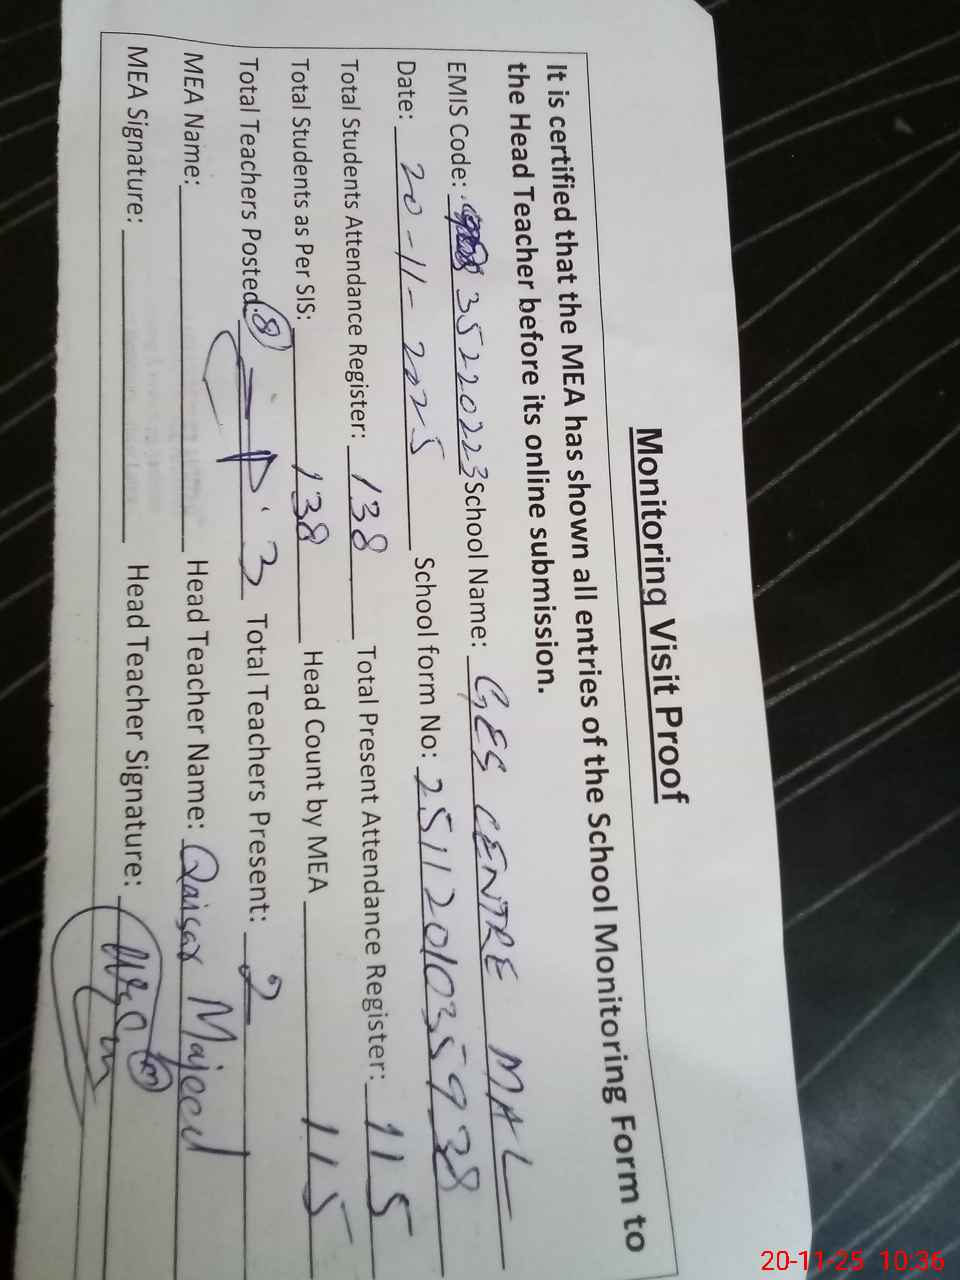 Monitoring Visit Proof
It is certified that the MEA has shown all entries of the School Monitoring Form to
the Head Teacher before its online submission.
EMIS Code: 35220223 School Name: GES CENTRE MAL
Date: 20-11-2025 School form No: 2511201035928
Total Students Attendance Register: 138 Total Present Attendance Register: 115
Total Students as Per SIS: 138 Head Count by MEA 115
Total Teachers Posted: 8 3 Total Teachers Present: 2
MEA Name: Head Teacher Name: Qaisar Majeed
MEA Signature: Head Teacher Signature:
20-11-25 10:36